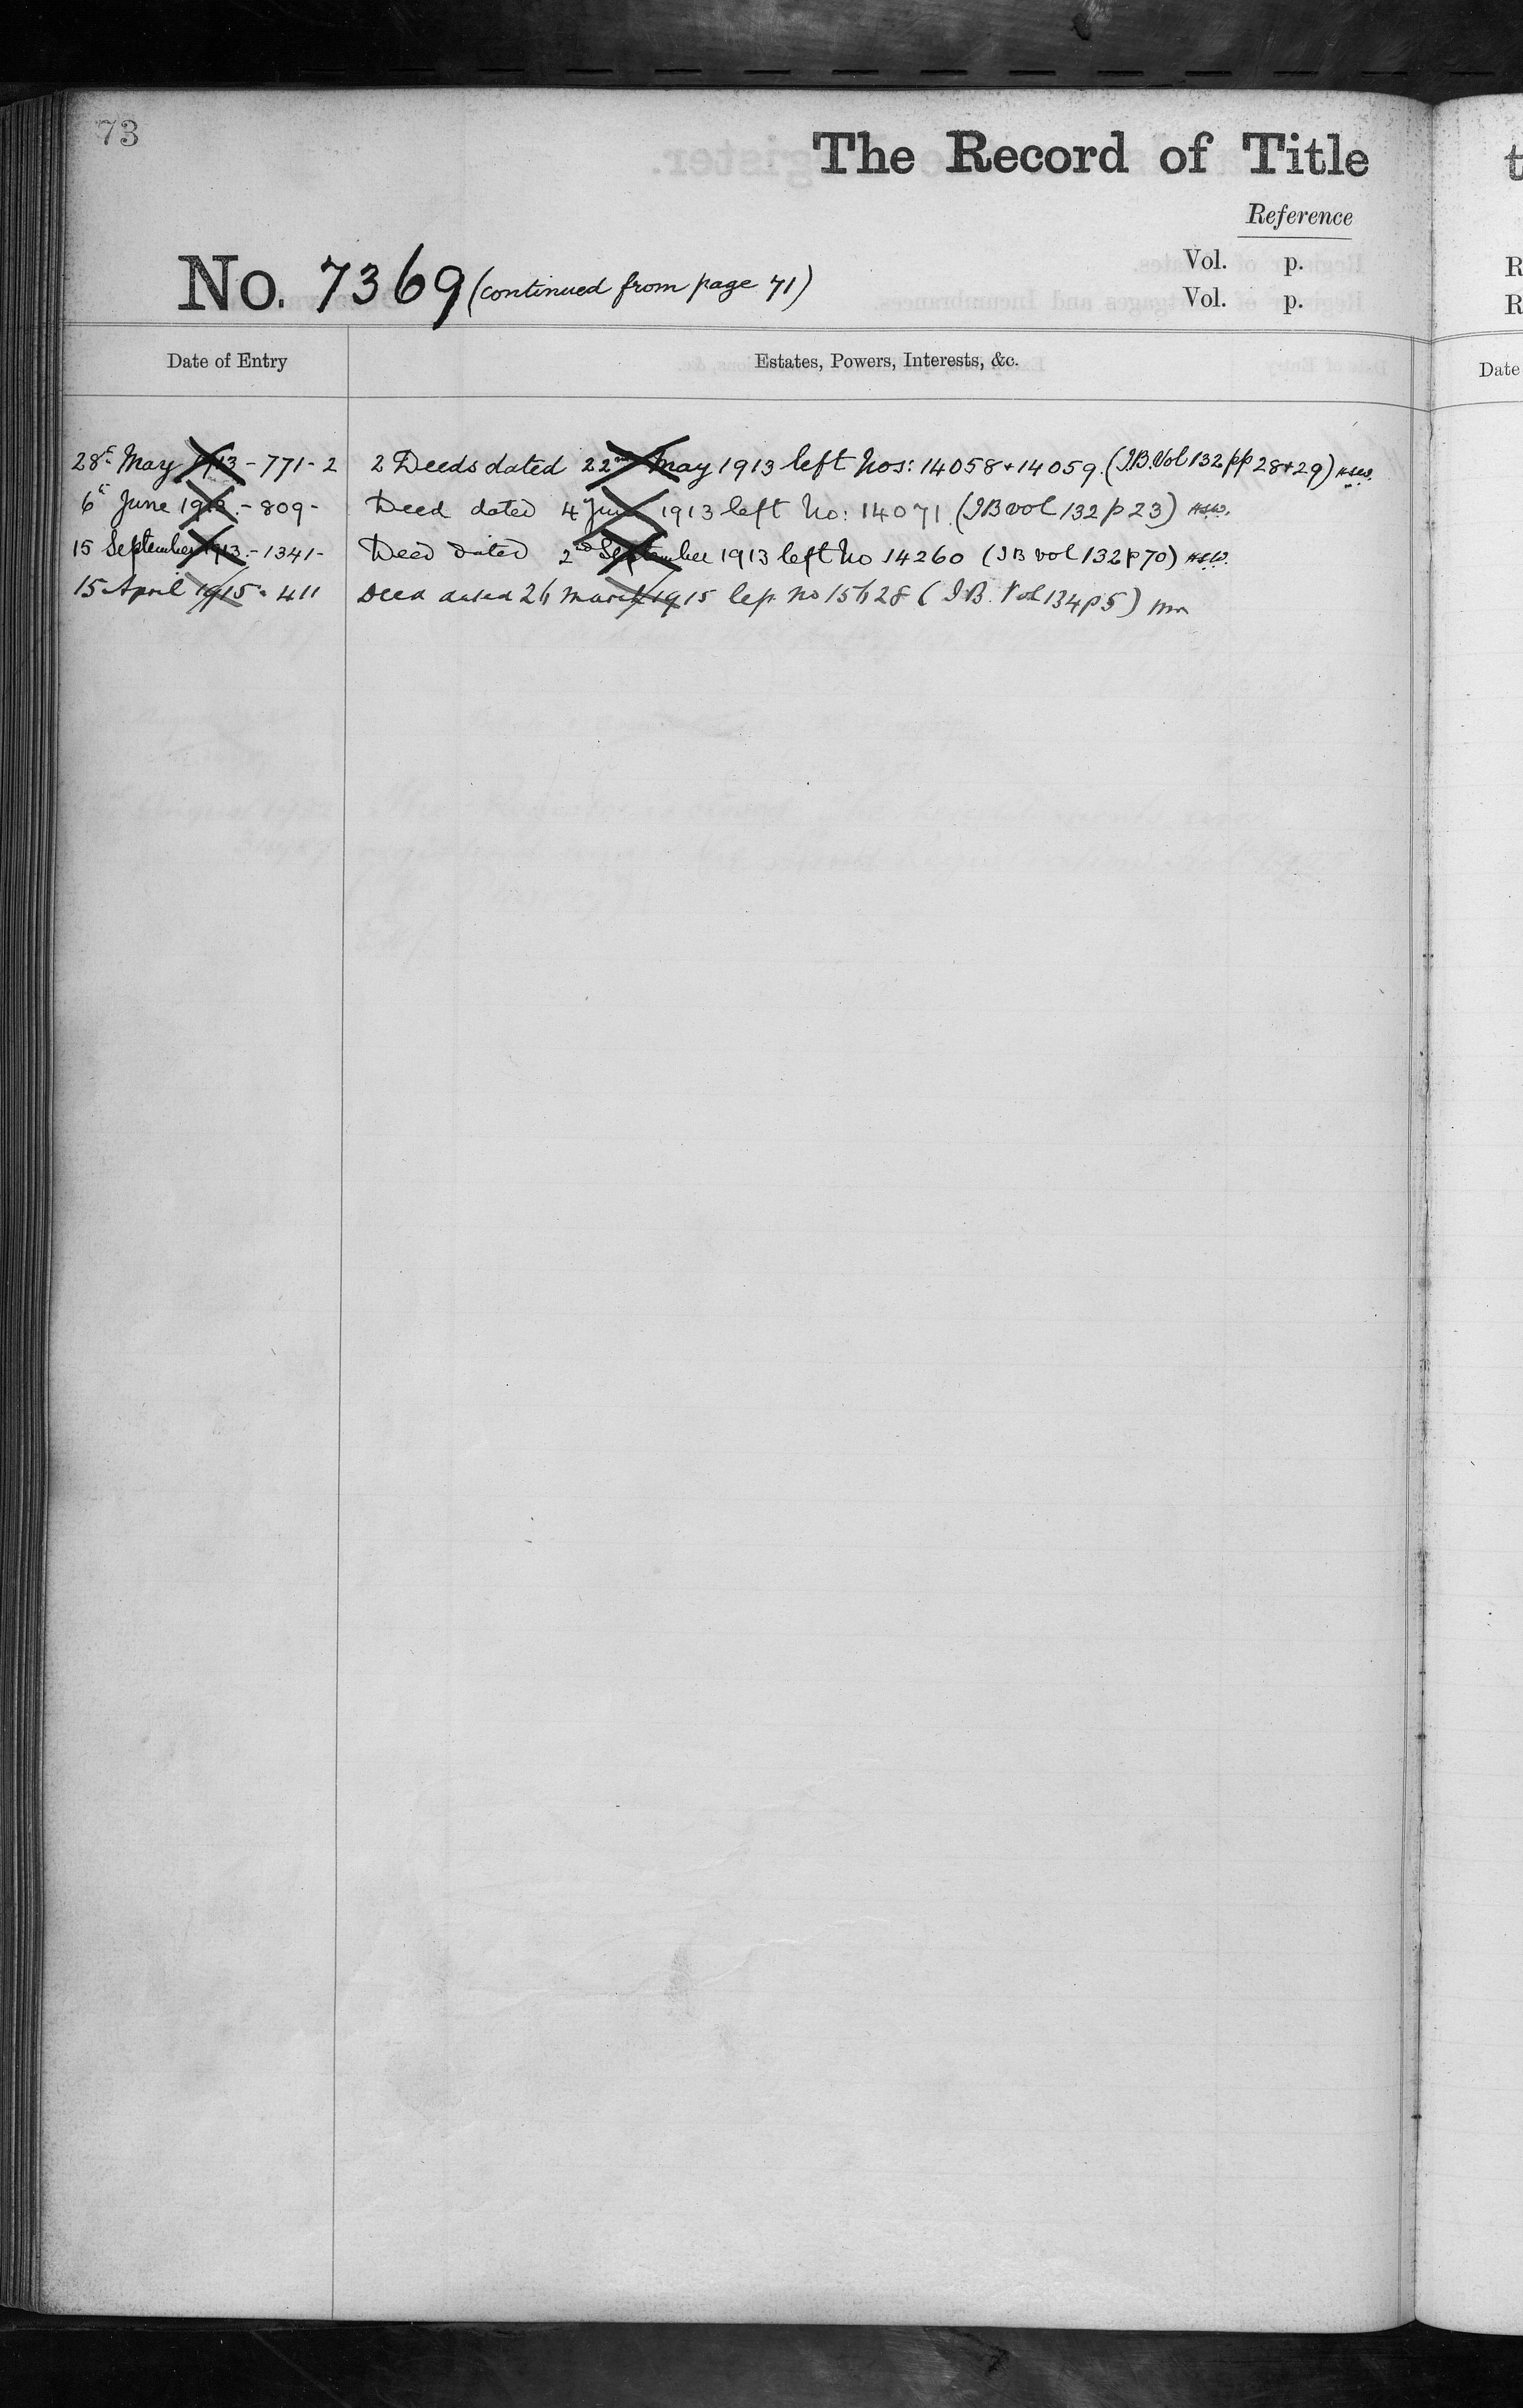 73
The Record of Title
Reference
No. 7369 (continued from page 71)
Vol. p.
Vol. p.
Date of Entry
Estates, Powers, Interests, &c.
28t May 1913 - 771-2 2 Deeds dated 22nd May 1913 left Nos: 14058 + 14059. (I.B. Vol 132 pp 28+29) H.S.W.
6t June 1913 - 809 - Deed dated 4 June 1913 left No: 14071 (IB vol 132 p 23) H.S.W.
15 September 1913 - 1341 - Deed dated 2nd September 1913 left No 14260 (IB vol 132 p 70) H.S.W.
15 April 1915 - 411 Deed dated 26 March 1915 left no 15628 (I.B. Vol 134 p 5)
t
R
R
Date